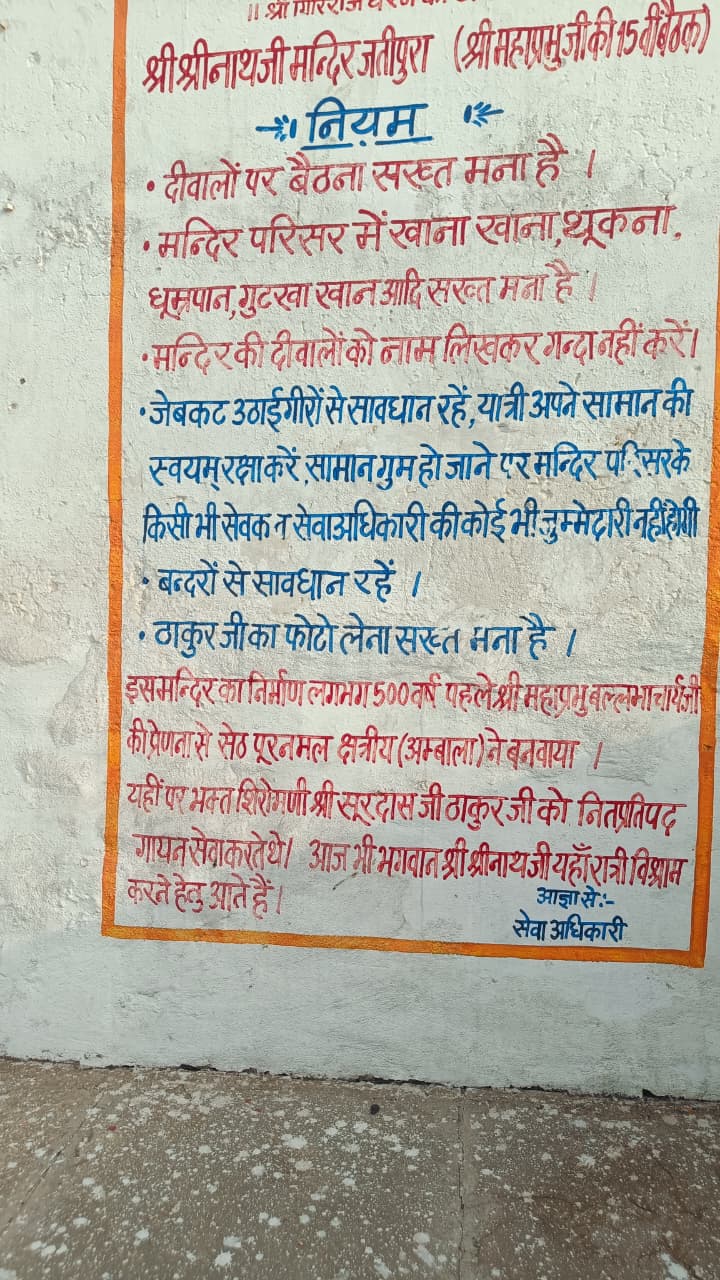 ॥ श्री गिरिराज
श्री श्रीनाथजी मन्दिर जतीपुरा (श्री महाप्रभुजी की 15 वीं बैठक)
नियम
• दीवालों पर बैठना सख्त मना है ।
• मन्दिर परिसर में खाना खाना, थूकना,
धूम्रपान, गुटखा खान आदि सख्त मना है ।
• मन्दिर की दीवालों को नाम लिखकर गन्दा नहीं करें।
• जेबकट उठाईगीरों से सावधान रहें, यात्री अपने सामान की
स्वयम् रक्षा करें, सामान गुम हो जाने पर मन्दिर परिसर के
किसी भी सेवक न सेवाअधिकारी की कोई भी जुम्मेदारी नहीं होगी
• बन्दरों से सावधान रहें ।
• ठाकुर जी का फोटो लेना सख्त मना है ।
इस मन्दिर का निर्माण लगभग 500 वर्ष पहले श्री महाप्रभु बल्लभाचार्य जी
की प्रेणना से सेठ पूरनमल क्षत्रीय (अम्बाला) ने बनवाया ।
यहीं पर भक्त शिरोमणी श्री सूरदास जी ठाकुर जी को नितप्रतिपद
गायन सेवा करते थे। आज भी भगवान श्री श्रीनाथ जी यहाँ रात्री विश्राम
करने हेतु आते हैं।
आज्ञा से:-
सेवा अधिकारी